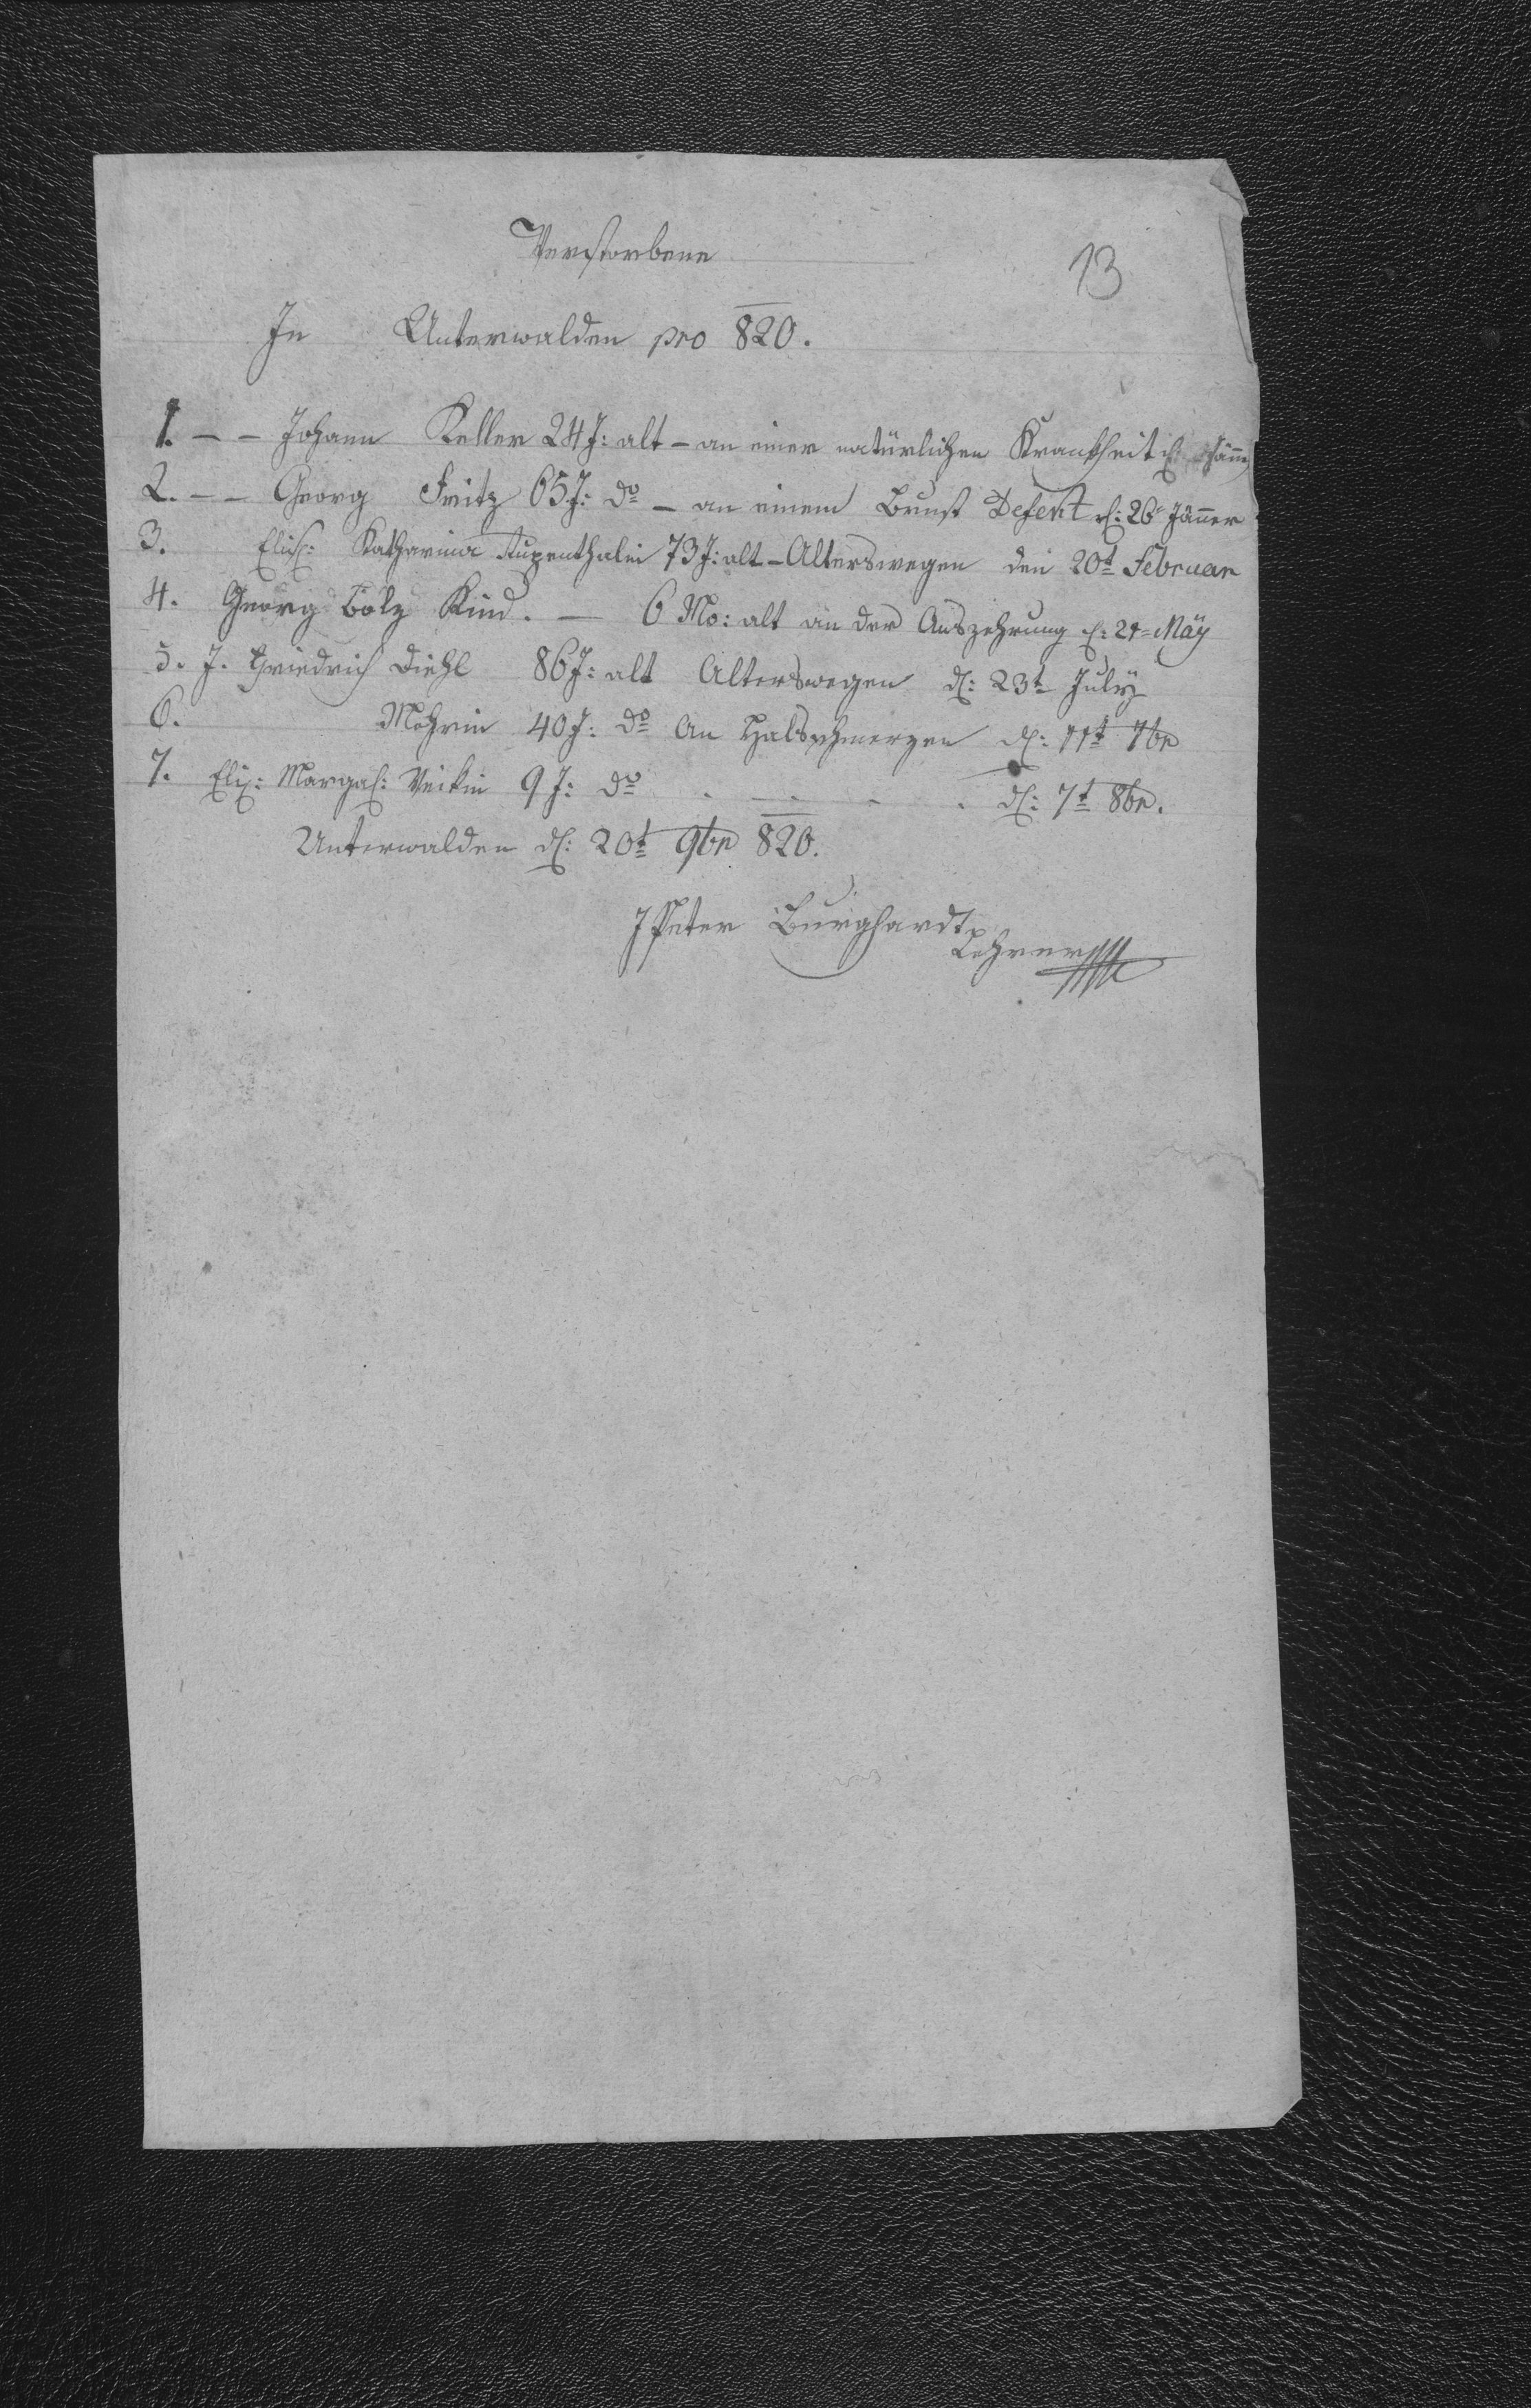 Verstorbene
13
In Unterwalden pro 820.
1. – – Johann Keller 24 J: alt – an einer natürlichen Krankheit d:
2. – – Georg Fritz 65 J: do – an einem Brust Defect d: 26t Jänner
3. Elis: Katharina 73 J: alt – Alterswegen den 20t Februar
4. Georg Bolz Kind. — 6 Mo: alt an der Auszehrung d: 21t May
5. J. Friedrich Diehl 86 J: alt Alterswegen d: 23t July
6. Mohrin 40 J: do an Halsschmerzen d: 11t 7br
7. Elis: Margar: 9 J: do . — . - . d: 7t 8br.
Unterwalden d: 20t 9br 820.
J Peter Burghardt
Lehrer